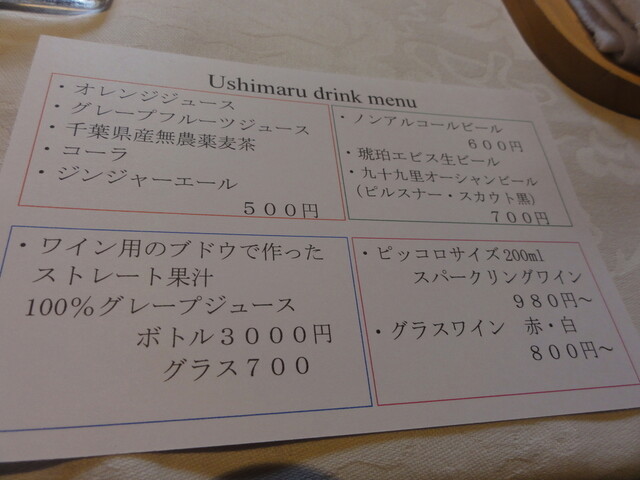 Ushimaru drink menu
・オレンジジュース
・グレープフルーツジュース
・千葉県産無農薬麦茶
・コーラ
・ジンジャーエール
５００円
・ノンアルコールビール
６００円
・琥珀エビス生ビール
・九十九里オーシャンビール
(ピルスナー・スカウト黒)
７００円
・ワイン用のブドウで作った
ストレート果汁
100％グレープジュース
ボトル３０００円
グラス７００
・ピッコロサイズ200ml
スパークリングワイン
９８０円～
・グラスワイン　赤・白
８００円～